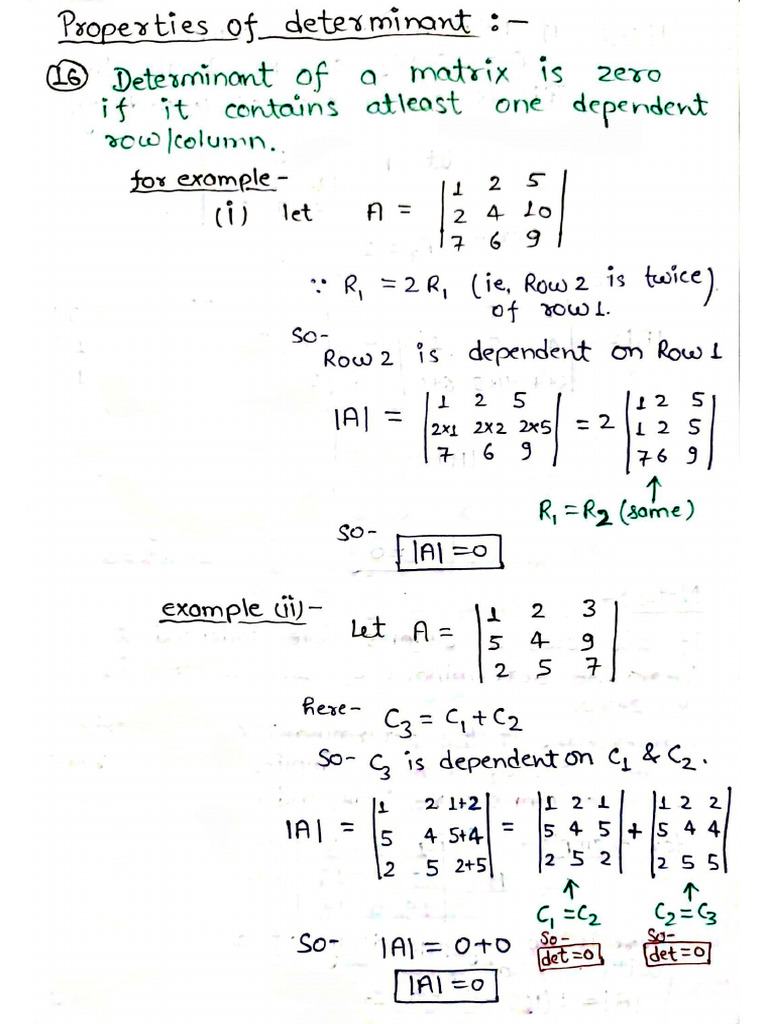 Properties of determinant :-
(16) Determinant of a matrix is zero
if it contains atleast one dependent
row/column.
for example-
(i) let A = |1 2 5|
|2 4 10|
|7 6 9|
∵ R₁ = 2R₁ (ie, Row 2 is twice)
of row 1.
So-
Row 2 is dependent on Row 1
|A| = |1 2 5| = 2 |1 2 5|
|2×1 2×2 2×5| |1 2 5|
|7 6 9| |7 6 9|
↑
R₁ = R₂ (same)
so-
|A| = 0
example (ii)-
Let A = |1 2 3|
|5 4 9|
|2 5 7|
here- C₃ = C₁ + C₂
So- C₃ is dependent on C₁ & C₂.
|A| = |1 2 1+2| = |1 2 1| + |1 2 2|
|5 4 5+4| |5 4 5| |5 4 4|
|2 5 2+5| |2 5 2| |2 5 5|
↑ ↑
C₁ = C₂ C₂ = C₃
So- So-
det = 0 det = 0
So- |A| = 0 + 0
|A| = 0